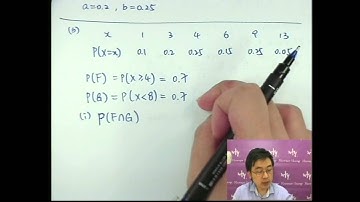 a=0.2 , b=0.25
(b) x 1 3 4 6 9 13
P(X=x) 0.1 0.2 0.25 0.15 0.25 0.05
P(F) = P(X≥4) = 0.7
P(G) = P(X<8) = 0.7
(i) P(F∩G)